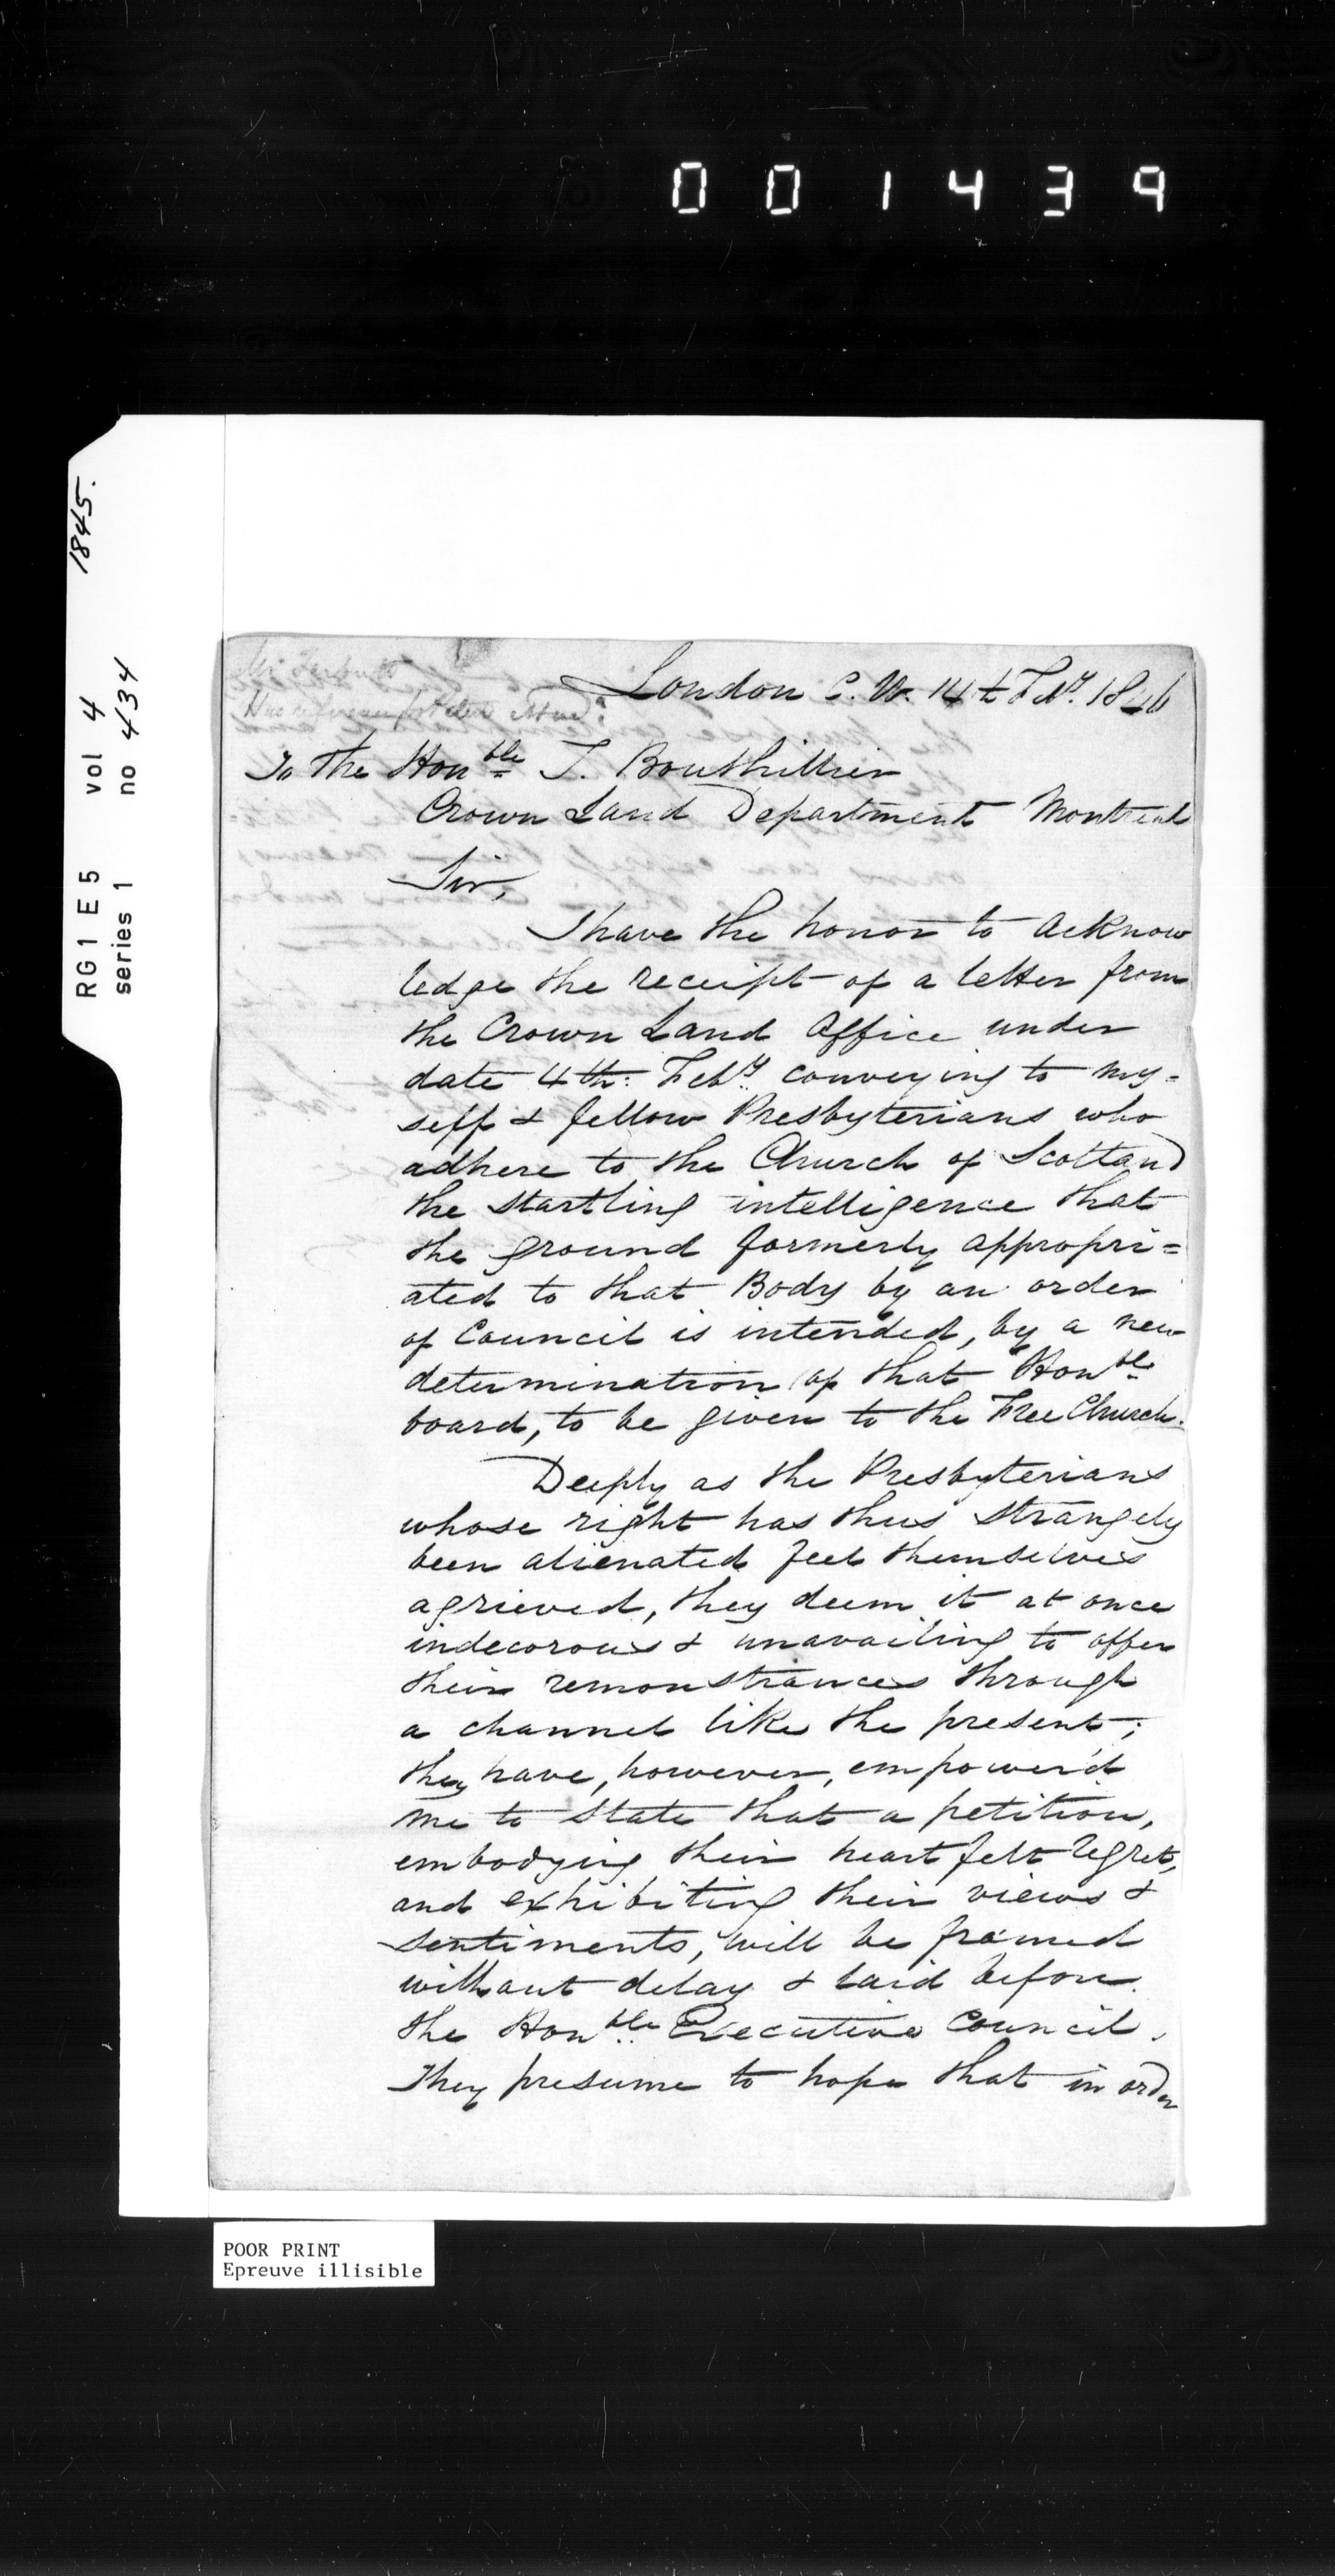 001439
1845.
RG1 E5 vol 4
series 1 no 434
London C. W. 14th Feby. 1846
To the Honble T. Bouthillier
Crown Land Department Montreal
Sir,
I have the honor to acknow
ledge the receipt of a letter from
the Crown Land Office under
date 4th: Feby conveying to my=
self & fellow Presbyterians who
adhere to the Church of Scotland
the startling intelligence that
the ground formerly appropri=
ated to that Body by an order
of Council is intended, by a new
determination of that Honble
board, to be given to the Free Church.
Deeply as the Presbyterians
whose right has thus strangely
been alienated feel themselves
agrieved, they deem it at once
indecorous & unavailing to offer
their remonstrances through
a channel like the present;
they have, however, empower'd
me to state that a petition,
embodying their heartfelt regret,
and exhibiting their views &
sentiments, will be framed
without delay & laid before
the Honble Executive Council.
They presume to hope that in order
POOR PRINT
Epreuve illisible